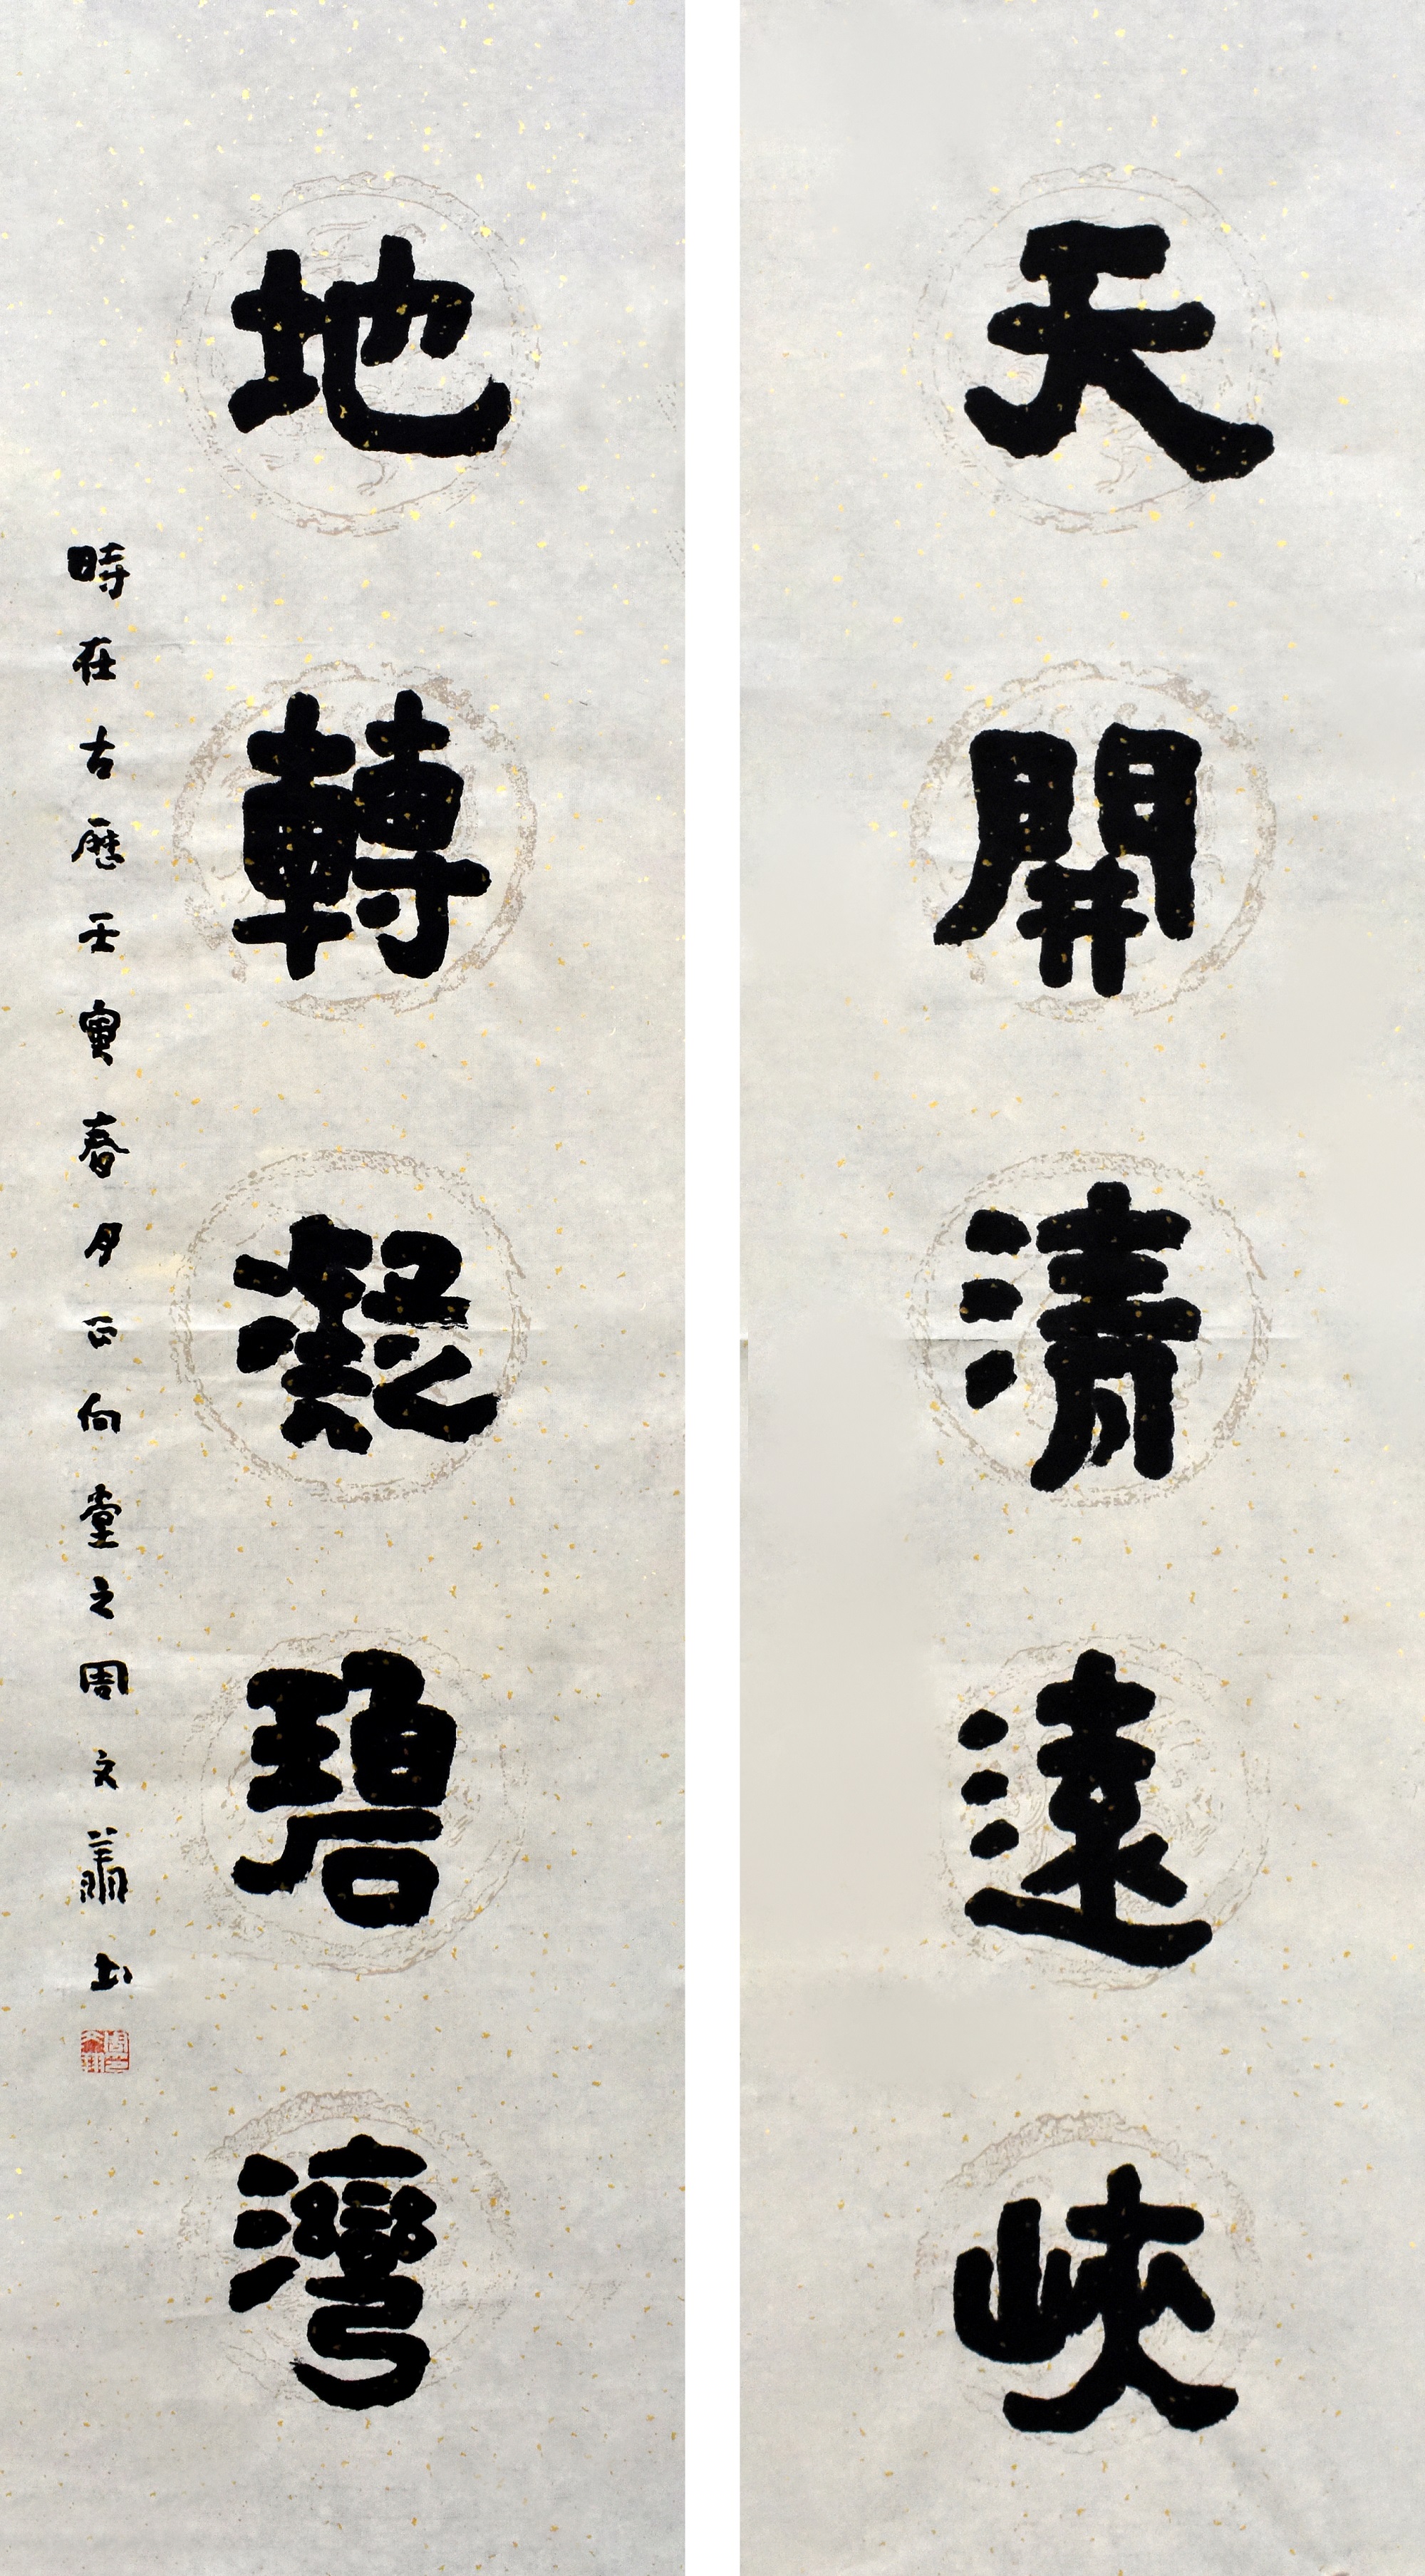 天開清遠峽
地轉凝碧灣
時在古歷壬寅春月正向堂之周文